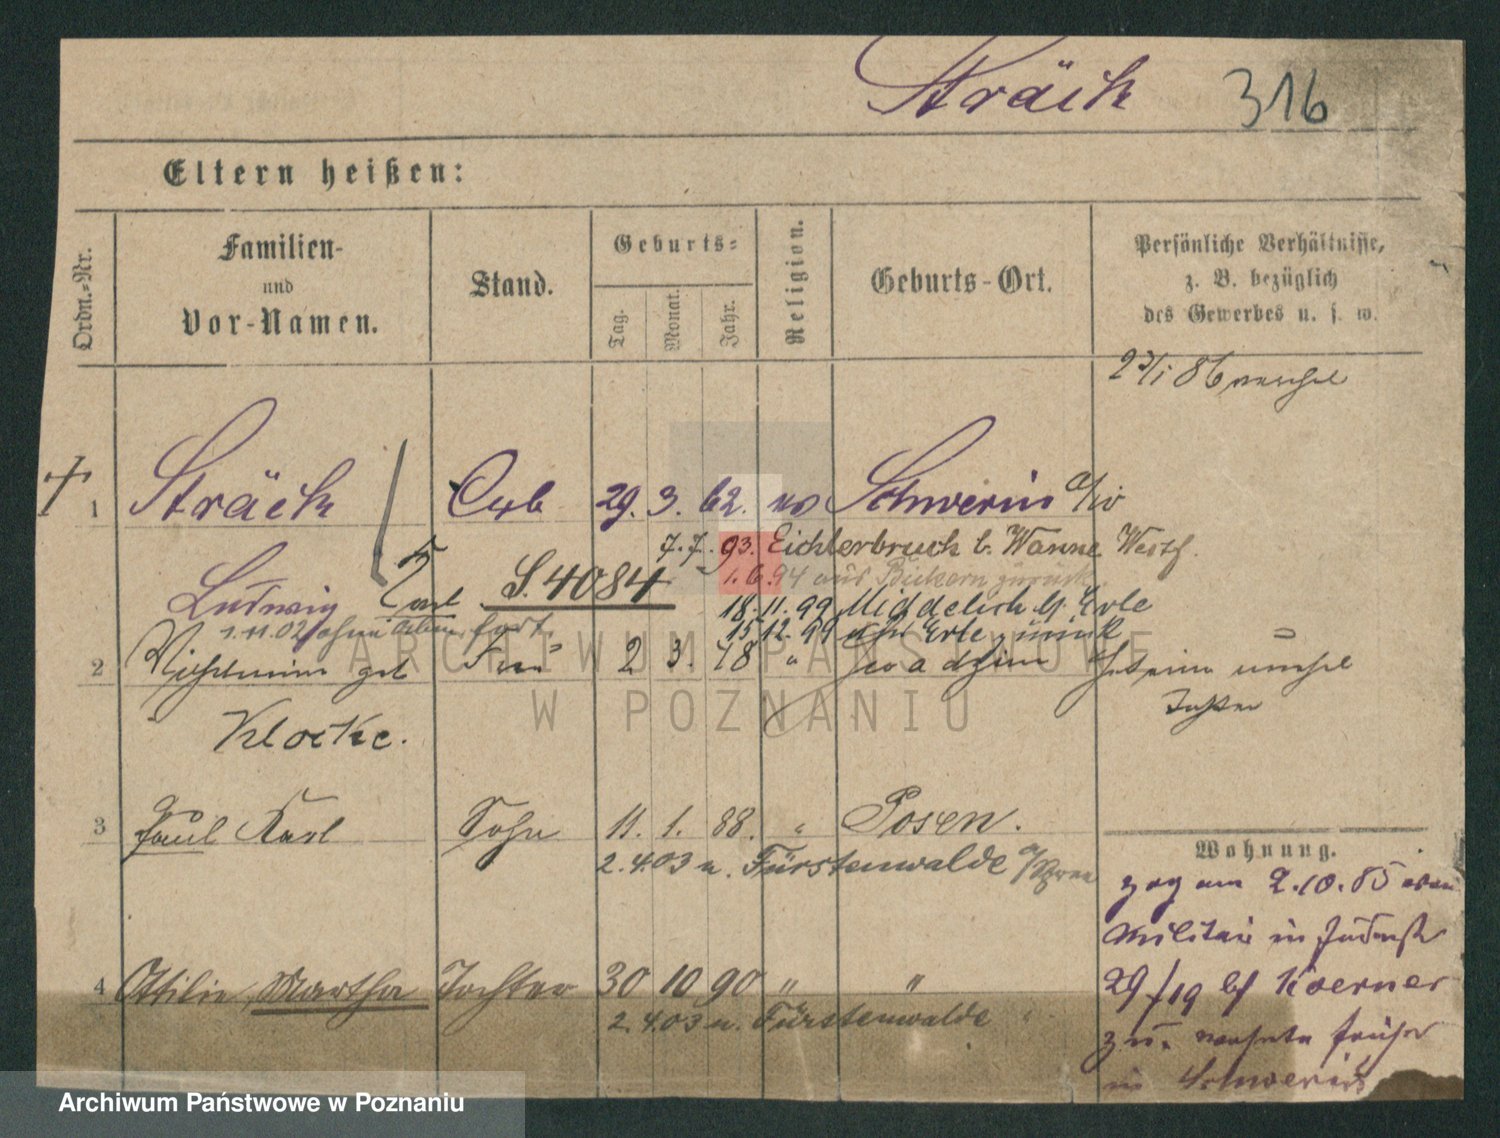 Sträck 316
Eltern heißen:
Ordn.-Nr.
Familien- und Vor-Namen.
Stand.
Geburts-
Tag.
Monat.
Jahr.
Religion.
Geburts-Ort.
Persönliche Verhältnisse,
z. B. bezüglich
des Gewerbes u. s. w.
86
1 Sträck Arb 29. 3. 62. Schwerin a/W
7. 7. 93. Eichlerbruch b. Wanne Westf.
Ludwig Karl S. 4084 1. 6. 94 aus zurück
18. 11. 99 Middelich b/ Erle
1.11.02 ohne fort. 15 12. 99 Erle zurück
2 Wilhelmine geb Frau 2 3. "
Klocke.
3 Paul Karl Sohn 11. 1. 88. " Posen.
2.4.03 n. Fürstenwalde a/Spree
Wohnung.
zog am 2.10.85 vom
Militair in
4 Ottilie, Martha Tochter 30 10 90 " " 29/19 bei Koerner
2.4.03 n. Fürstenwalde
zu. wohnte früher
in Schwerin
ARCHIWUM PAŃSTWOWE
W POZNANIU
Archiwum Państwowe w Poznaniu